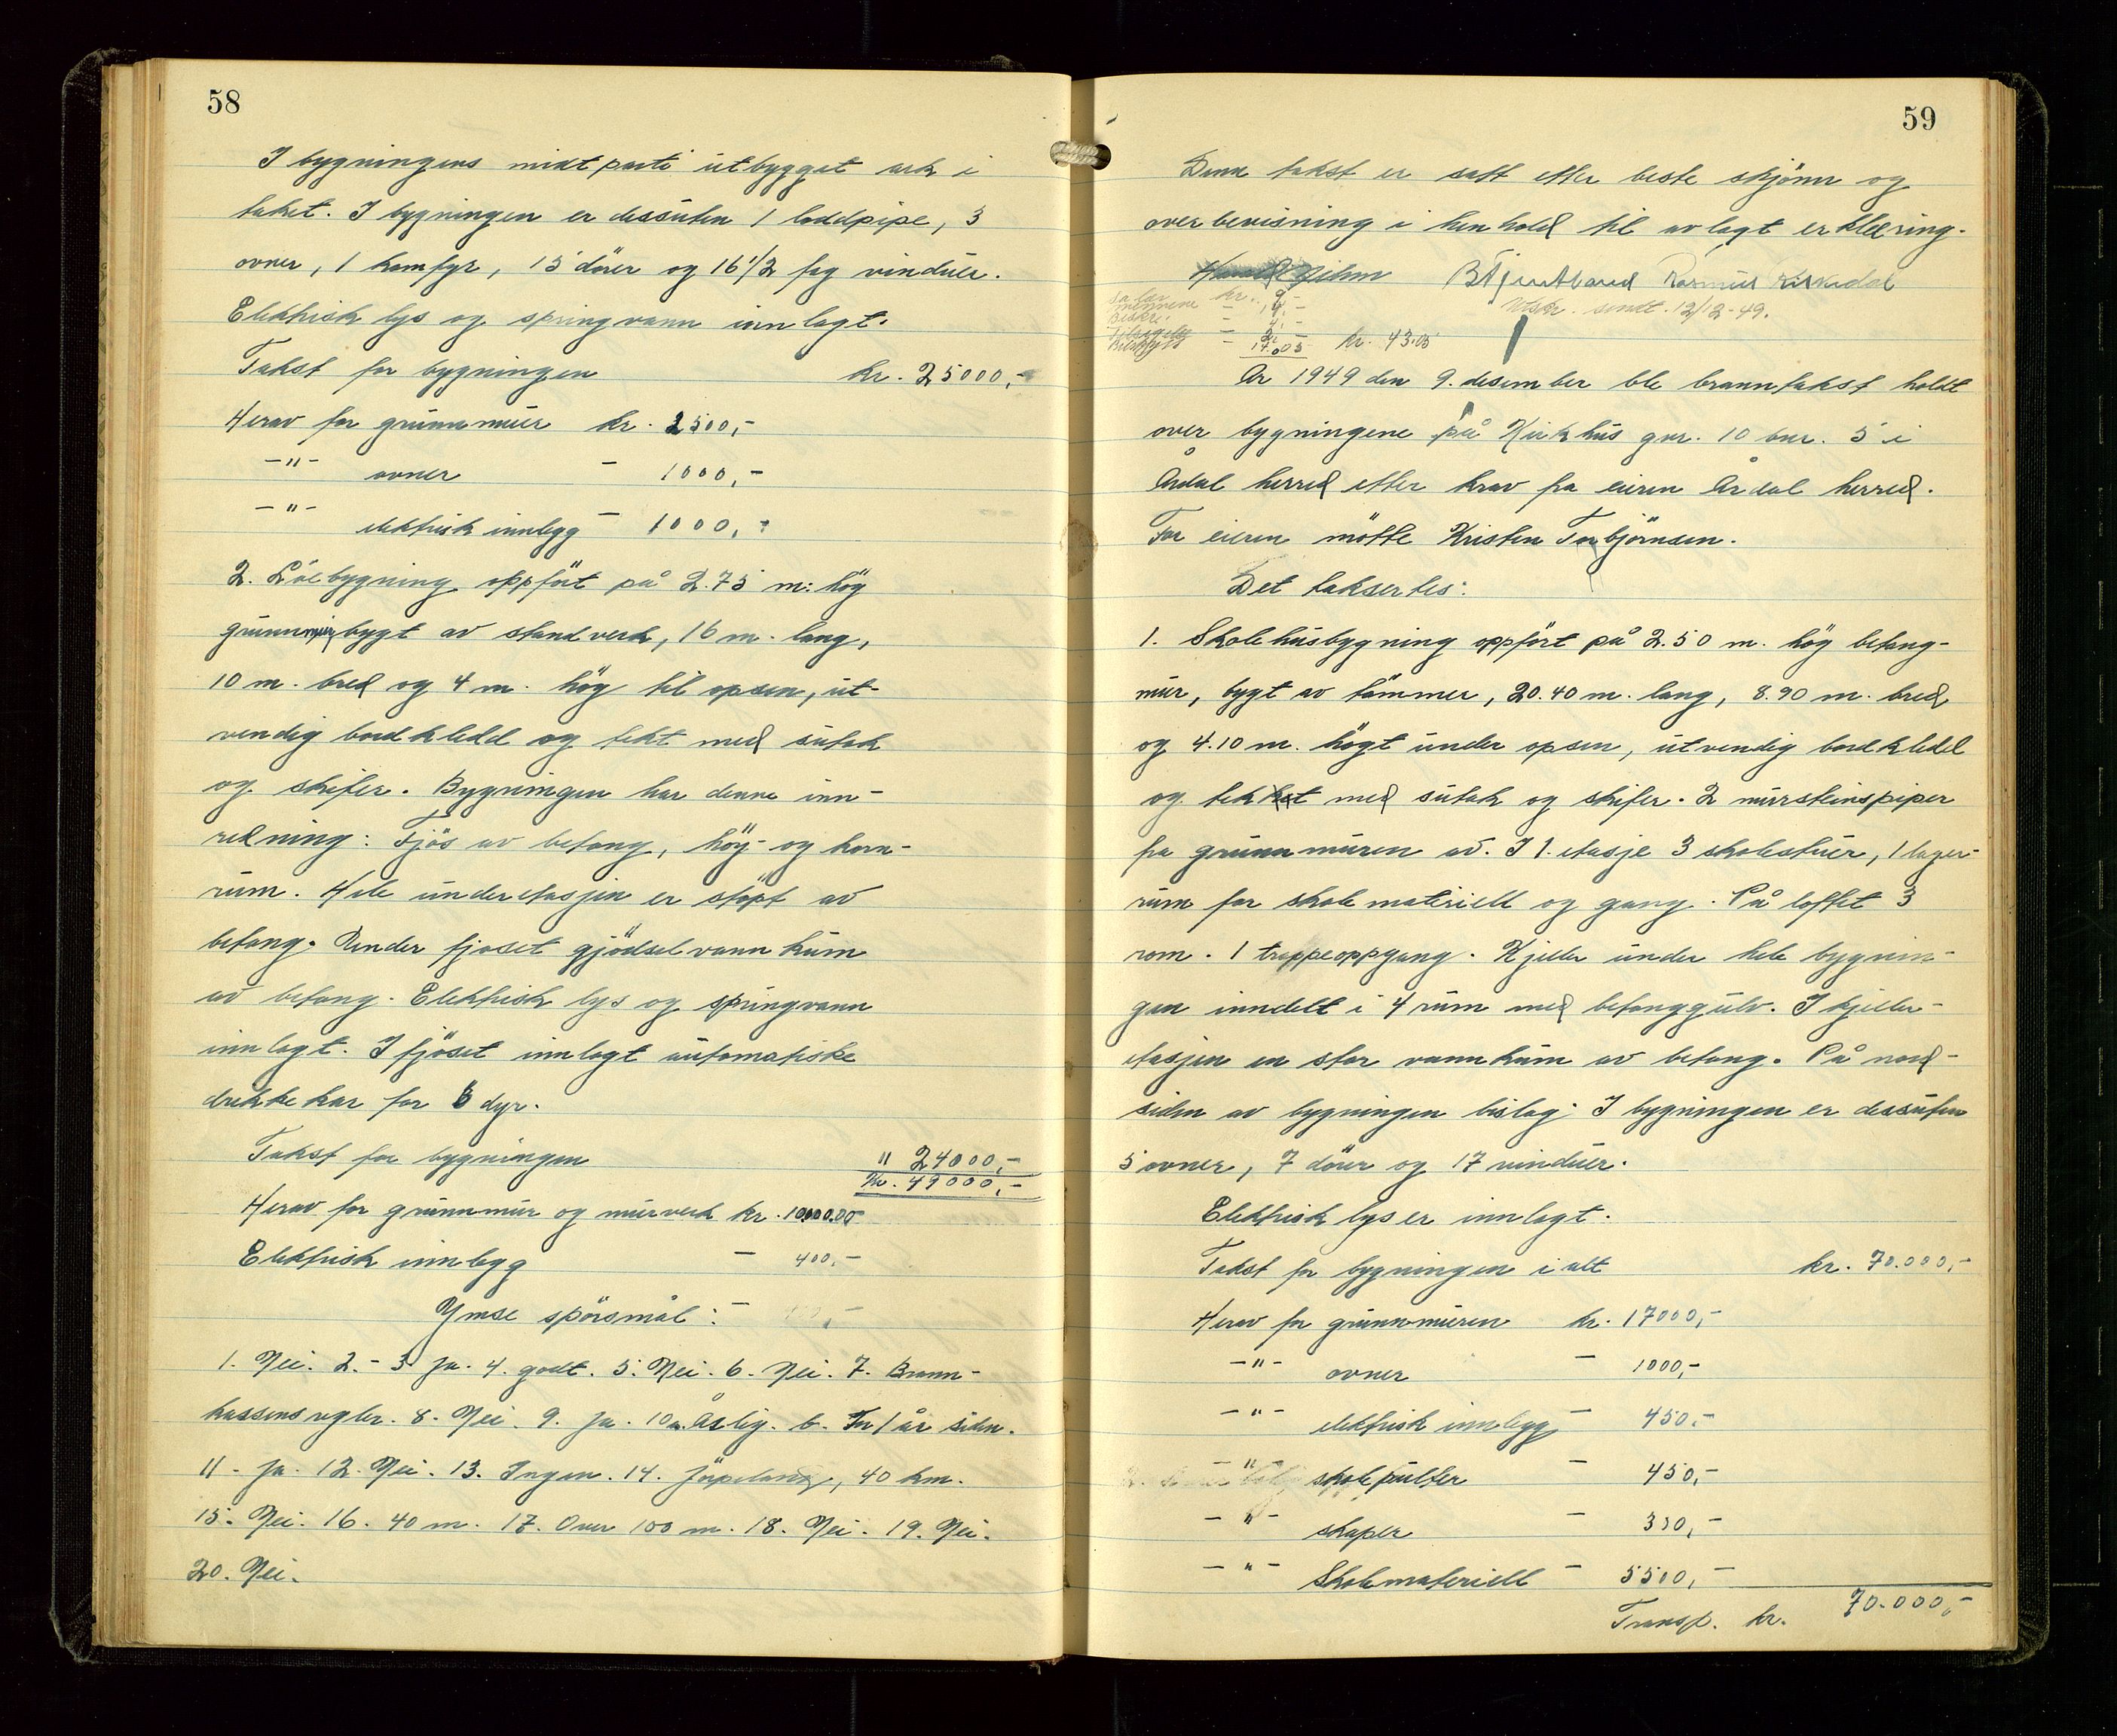 58
I bygningens midtparti utbygget ark i
taket. I bygningen er dessuten 1 loddpipe, 3
ovner, 1 komfyr, 15 dører og 16 1/2 fag vinduer.
Elektrisk lys og springvann innlagt.
Takst for bygningen kr. 25000,-
Herav for grunnmur kr. 2500,-
-"- ovner - 1000,-
-"- elektrisk innlegg - 1000,-
2. Löebygning oppfört på 2.75 m: hög
grunnmur bygt av standverk, 16 m. lang,
10 m. bred og 4 m. hög til opsen, ut-
vendig bordkledd og tekt med sutak
og skifer. Bygningen har denne inn-
redning: Fjös av betong, höy- og korn-
rum. Hele underetasjen er stöpt av
betong. Under fjoset gjödselvannkum
av betong. Elektrisk lys og springvann
innlagt. I fjöset innlagt automatiske
drikkekar for 6 dyr.
Takst for bygningen " 24000,-
Kr. 49000,-
Herav for grunnmur og murverk kr. 10000.00
Elektrisk innlegg - 400,-
Ymse spörsmål:
1. Nei. 2. - 3 ja. 4. godt. 5. Nei. 6. Nei. 7. Brann-
kassens regler. 8. Nei. 9. Ja. 10 a. Åslig. b. For 1 år siden.
11 - Ja. 12. Nei. 13. Ingen. 14. Jörpeland, 40 km.
15. Nei. 16. 40 m. 17. Over 100 m. 18. Nei. 19. Nei.
20. Nei.
59
Denne takst er satt etter beste skjönn og
overbevisning i henhold til avlagt erklæring.
Rasmus Riskedal
Utskr. sendt. 12/12-49.
kr. 43.05
År 1949 den 9. desember ble branntakst holdt
over bygningene på Kirkhus gnr. 10 bnr. 5 i
Årdal herred etter krav fra eieren Årdal herred.
For eieren mötte Kristen Torbjörnsen.
Det taksertes:
1. Skolehusbygning oppfört på 2.50 m. hög betong-
mur, bygt av tömmer, 20.40 m. lang, 8.90 m. bred
og 4.10 m. högt under opsen, utvendig bordkledd
og tekt med sutak og skifer. 2 mursteinspiper
fra grunnmuren av. I 1. etasje 3 skolestuer, 1 lager-
rum for skolemateriell og gang. På loftet 3
rom. 1 trappeoppgang. Kjeller under hele bygnin-
gen inndelt i 4 rum med betonggulv. I kjeller-
etasjen en stor vannkum av betong. På nord-
siden av bygningen bislag. I bygningen er dessuten
5 ovner, 7 dörer og 17 vinduer.
Elektrisk lys er innlagt.
Takst for bygningen i alt kr. 70.000,-
Herav for grunnmuren kr. 17000,-
-"- ovner - 1000,-
-"- elektrisk innlegg - 450,-
-"- skolepulter - 450,-
-"- skaper - 350,-
-"- Skolemateriell - 5500,-
Transp. kr. 70.000,-